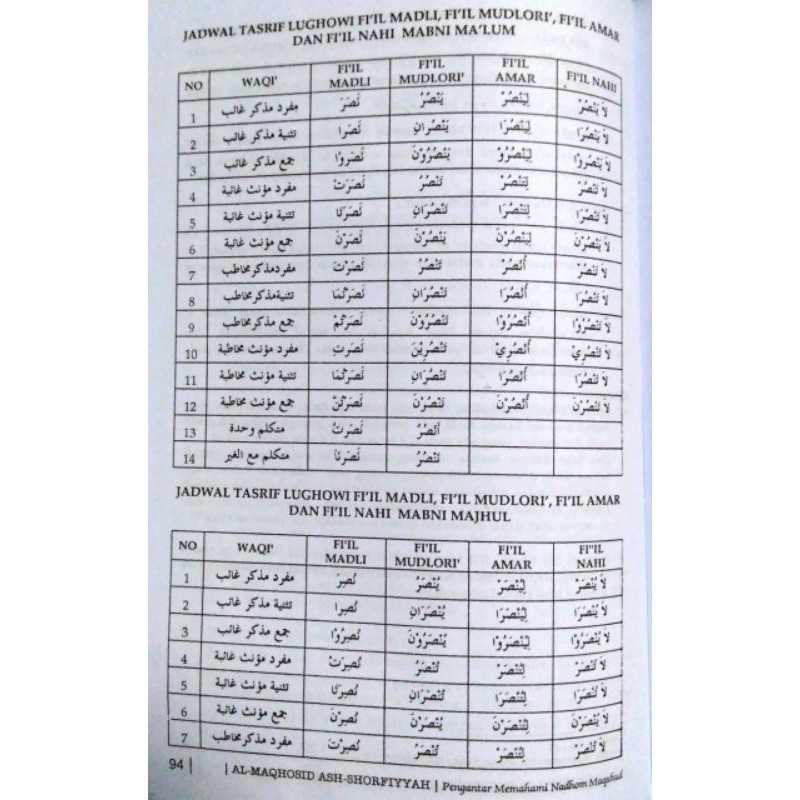 JADWAL TASRIF LUGHOWI FI'IL MADLI, FI'IL MUDLORI', FI'IL AMAR
DAN FI'IL NAHI MABNI MA'LUM
NO WAQI' FI'IL MADLI FI'IL MUDLORI' FI'IL AMAR FI'IL NAHI
1 مفرد مذكر غائب نَصَرَ يَنْصُرُ لِيَنْصُرْ لاَ يَنْصُرْ
2 تثنية مذكر غائب نَصَرا يَنْصُرانِ لِيَنْصُرَا لاَ يَنْصُرَا
3 جمع مذكر غائب نَصَروُا يَنْصُرُوْنَ لِيَنْصُرُوْ لاَ يَنْصُرُوْا
4 مفرد مؤنث غائبة نَصَرَتْ تَنْصُرُ لِتَنْصُرْ لاَ تَنْصُرْ
5 تثنية مؤنث غائبة نَصَرَتَا تَنْصُرَانِ لِتَنْصُرَا لاَ تَنْصُرَا
6 جمع مؤنث غائبة نَصَرْنَ يَنْصُرْنَ لِيَنْصُرْنَ لاَ يَنْصُرْنَ
7 مفردمذكر مخاطب نَصَرْتَ تَنْصُرُ أُنْصُرْ لاَ تَنْصُرْ
8 تثنيةمذكر مخاطب نَصَرْتُمَا تَنْصُرَانِ أُنْصُرَا لاَ تَنْصُرَا
9 جمع مذكر مخاطب نَصَرْتُمْ تَنْصُرُوْنَ أُنْصُرُوْا لاَ تَنْصُرُوْا
10 مفرد مؤنث مخاطبة نَصَرْتِ تَنْصُرِيْنَ أُنْصُرِيْ لاَ تَنْصُرِيْ
11 تثنية مؤنث مخاطبة نَصَرْتُمَا تَنْصُرَانِ أُنْصُرَا لاَ تَنْصُرَا
12 جمع مؤنث مخاطبة نَصَرْتُنَّ تَنْصُرْنَ أُنْصُرْنَ لاَ تَنْصُرْنَ
13 متكلم وحدة نَصَرْتُ أَنْصُرُ
14 متكلم مع الغير نَصَرْنَا نَنْصُرُ
JADWAL TASRIF LUGHOWI FI'IL MADLI, FI'IL MUDLORI', FI'IL AMAR
DAN FI'IL NAHI MABNI MAJHUL
NO WAQI' FI'IL MADLI FI'IL MUDLORI' FI'IL AMAR FI'IL NAHI
1 مفرد مذكر غائب نُصِرَ يُنْصَرُ لِيُنْصَرْ لاَ يُنْصَرْ
2 تثنية مذكر غائب نُصِرا يُنْصَرَانِ لِيُنْصَرَا لاَ يُنْصَرَا
3 جمع مذكر غائب نُصِرُوْا يُنْصَرُوْنَ لِيُنْصَرُوْا لاَ يُنْصَرُوْا
4 مفرد مؤنث غائبة نُصِرَتْ تُنْصَرُ لِتُنْصَرْ لاَ تُنْصَرْ
5 تثنية مؤنث غائبة نُصِرَتَا تُنْصَرَانِ لِتُنْصَرَا لاَ تُنْصَرَا
6 جمع مؤنث غائبة نُصِرْنَ يُنْصَرْنَ لِيُنْصَرْنَ لاَ يُنْصَرْنَ
7 مفرد مذكر مخاطب نُصِرْتَ تُنْصَرُ لِتُنْصَرْ لاَ تُنْصَرْ
94 | | AL-MAQHOSID ASH-SHORFIYYAH | Pengantar Memahami Nadhom Maqshud